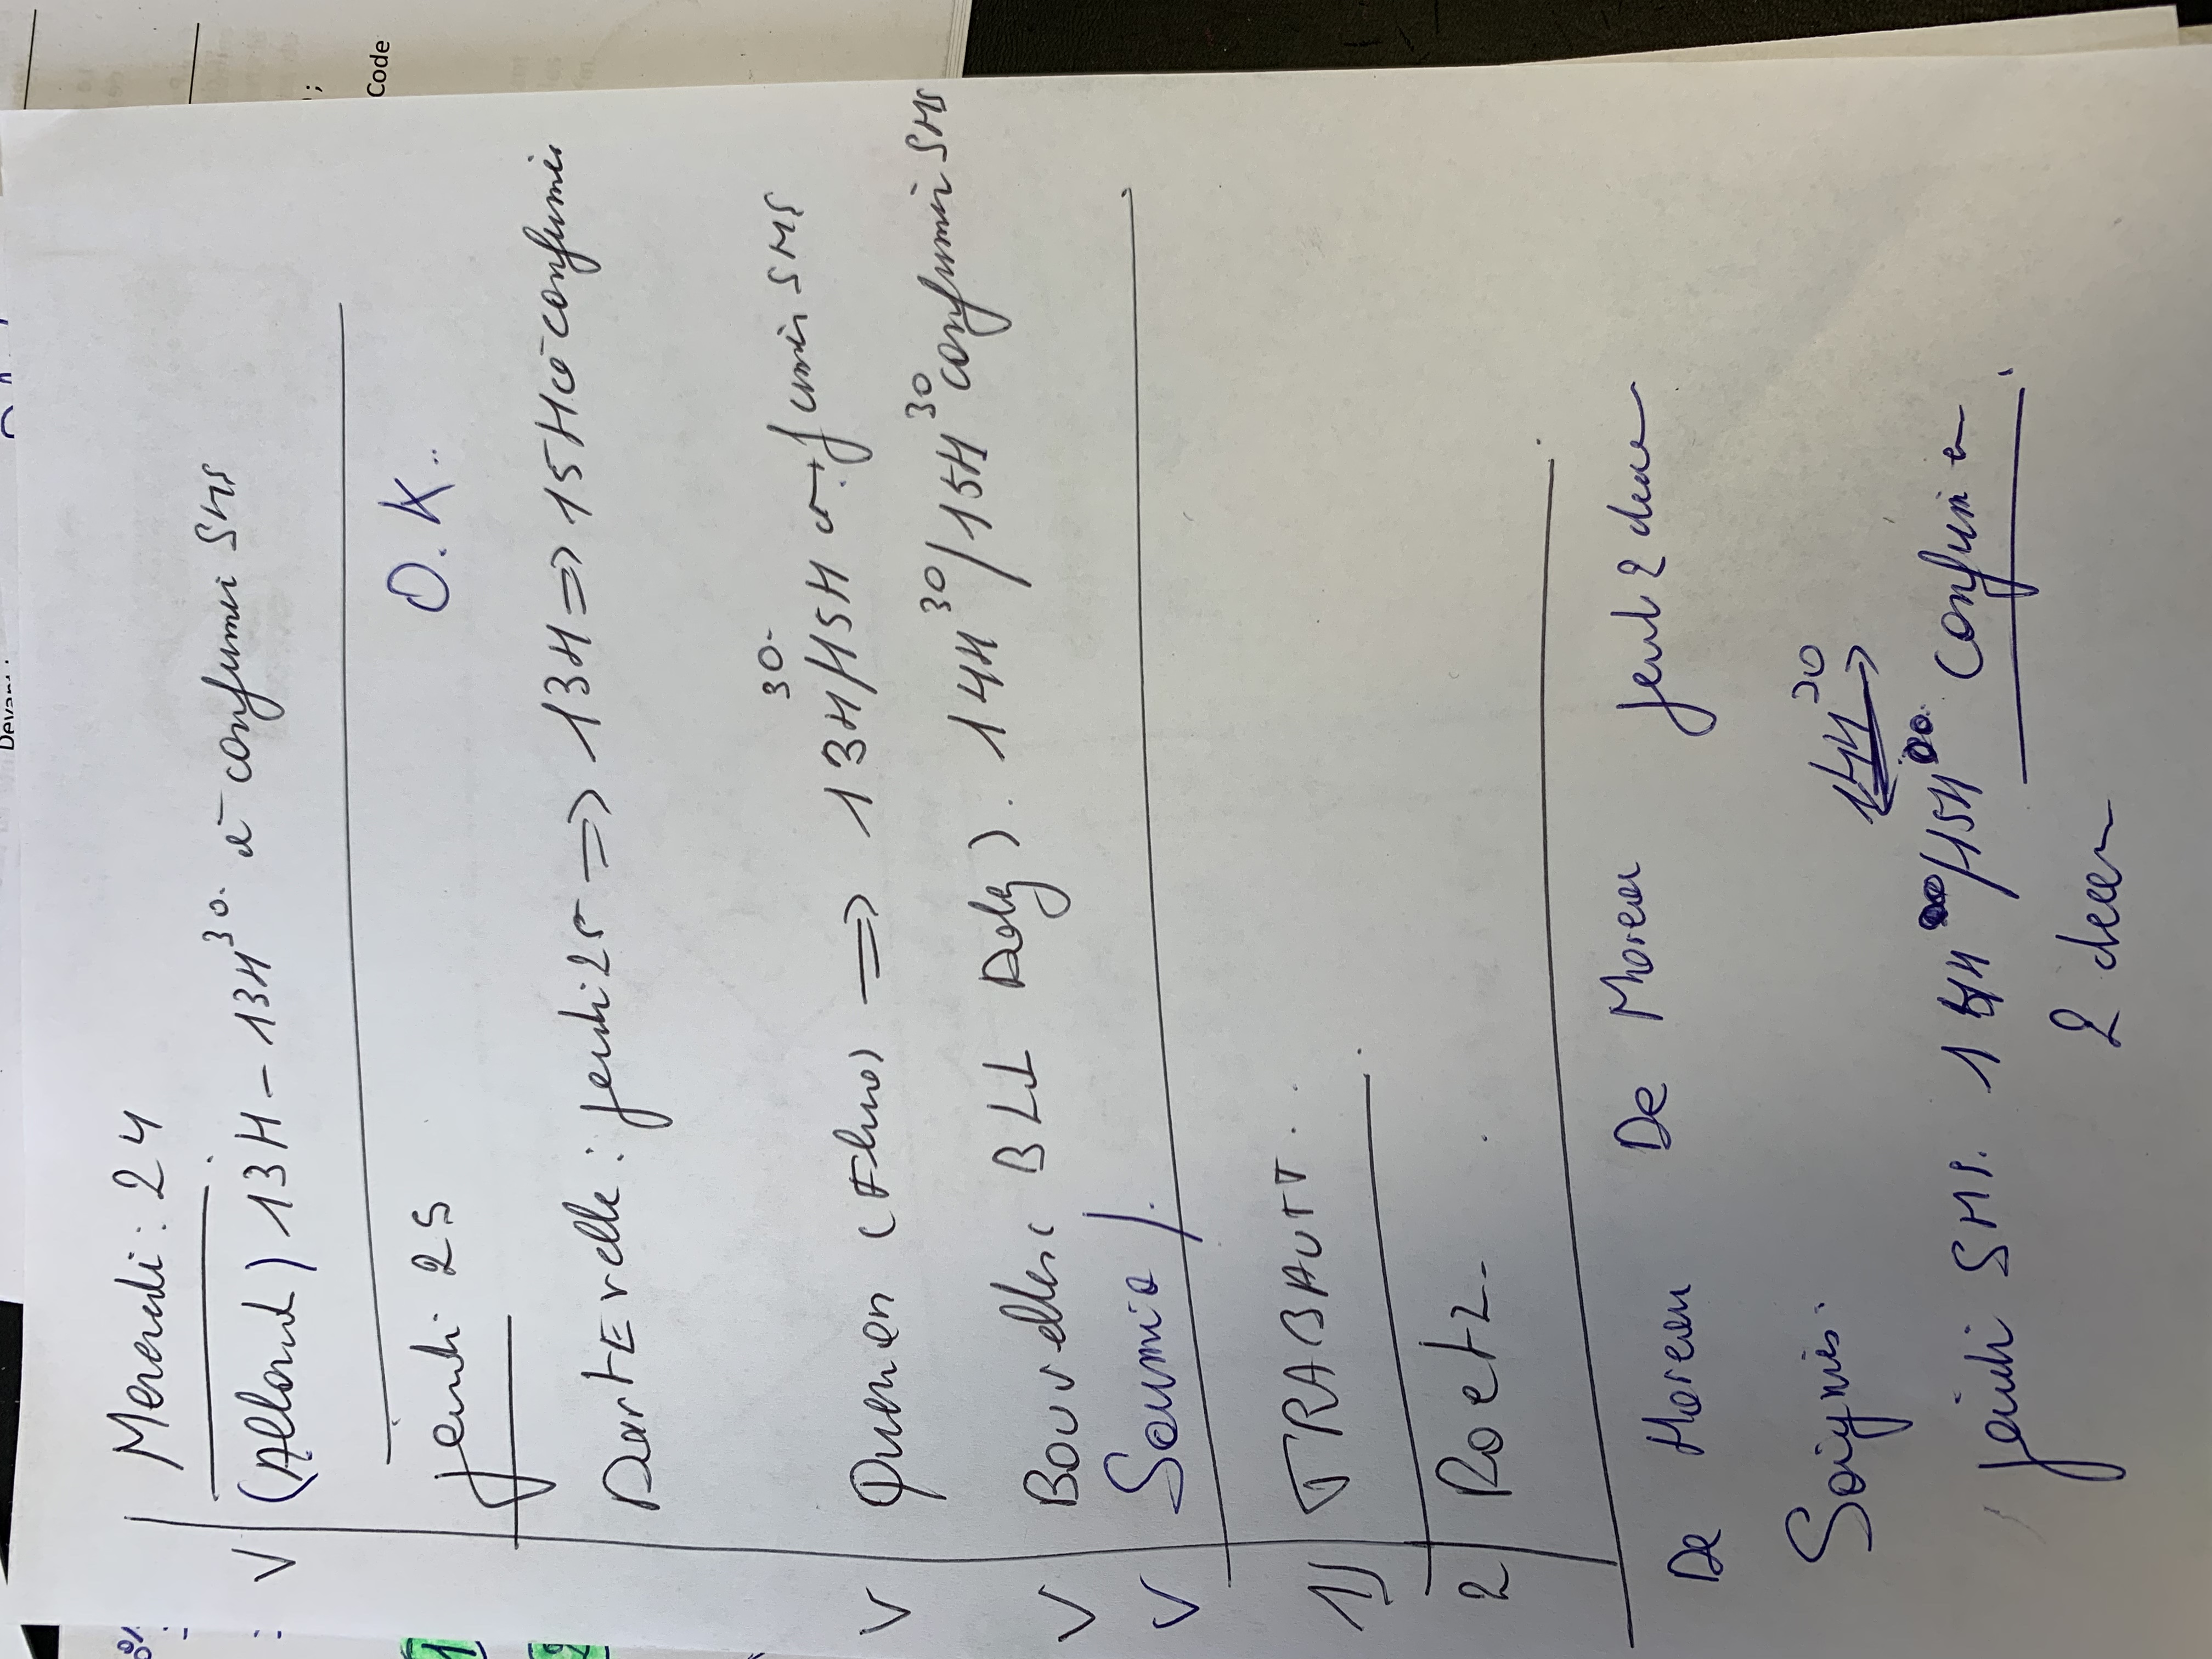 Mercredi : 24
V (Allard) 13H - 13H30. à confirmer SMS
O.K.
jeudi 25
DartEvelle : jeudi 25 => 13H => 15H à confirmer
V Quenen => 13H30/15H confirmer SMS
V Bouvelle BLD 14H30/15H30 confirmer SMS
V Soumia /.
1) TRABAUT.
2 Roetz.
De Moreau De Moreau jeudi 2 decem
Soignies. 14H30
jeudi SMS. 14H /15H confirmer
2 decem
Code